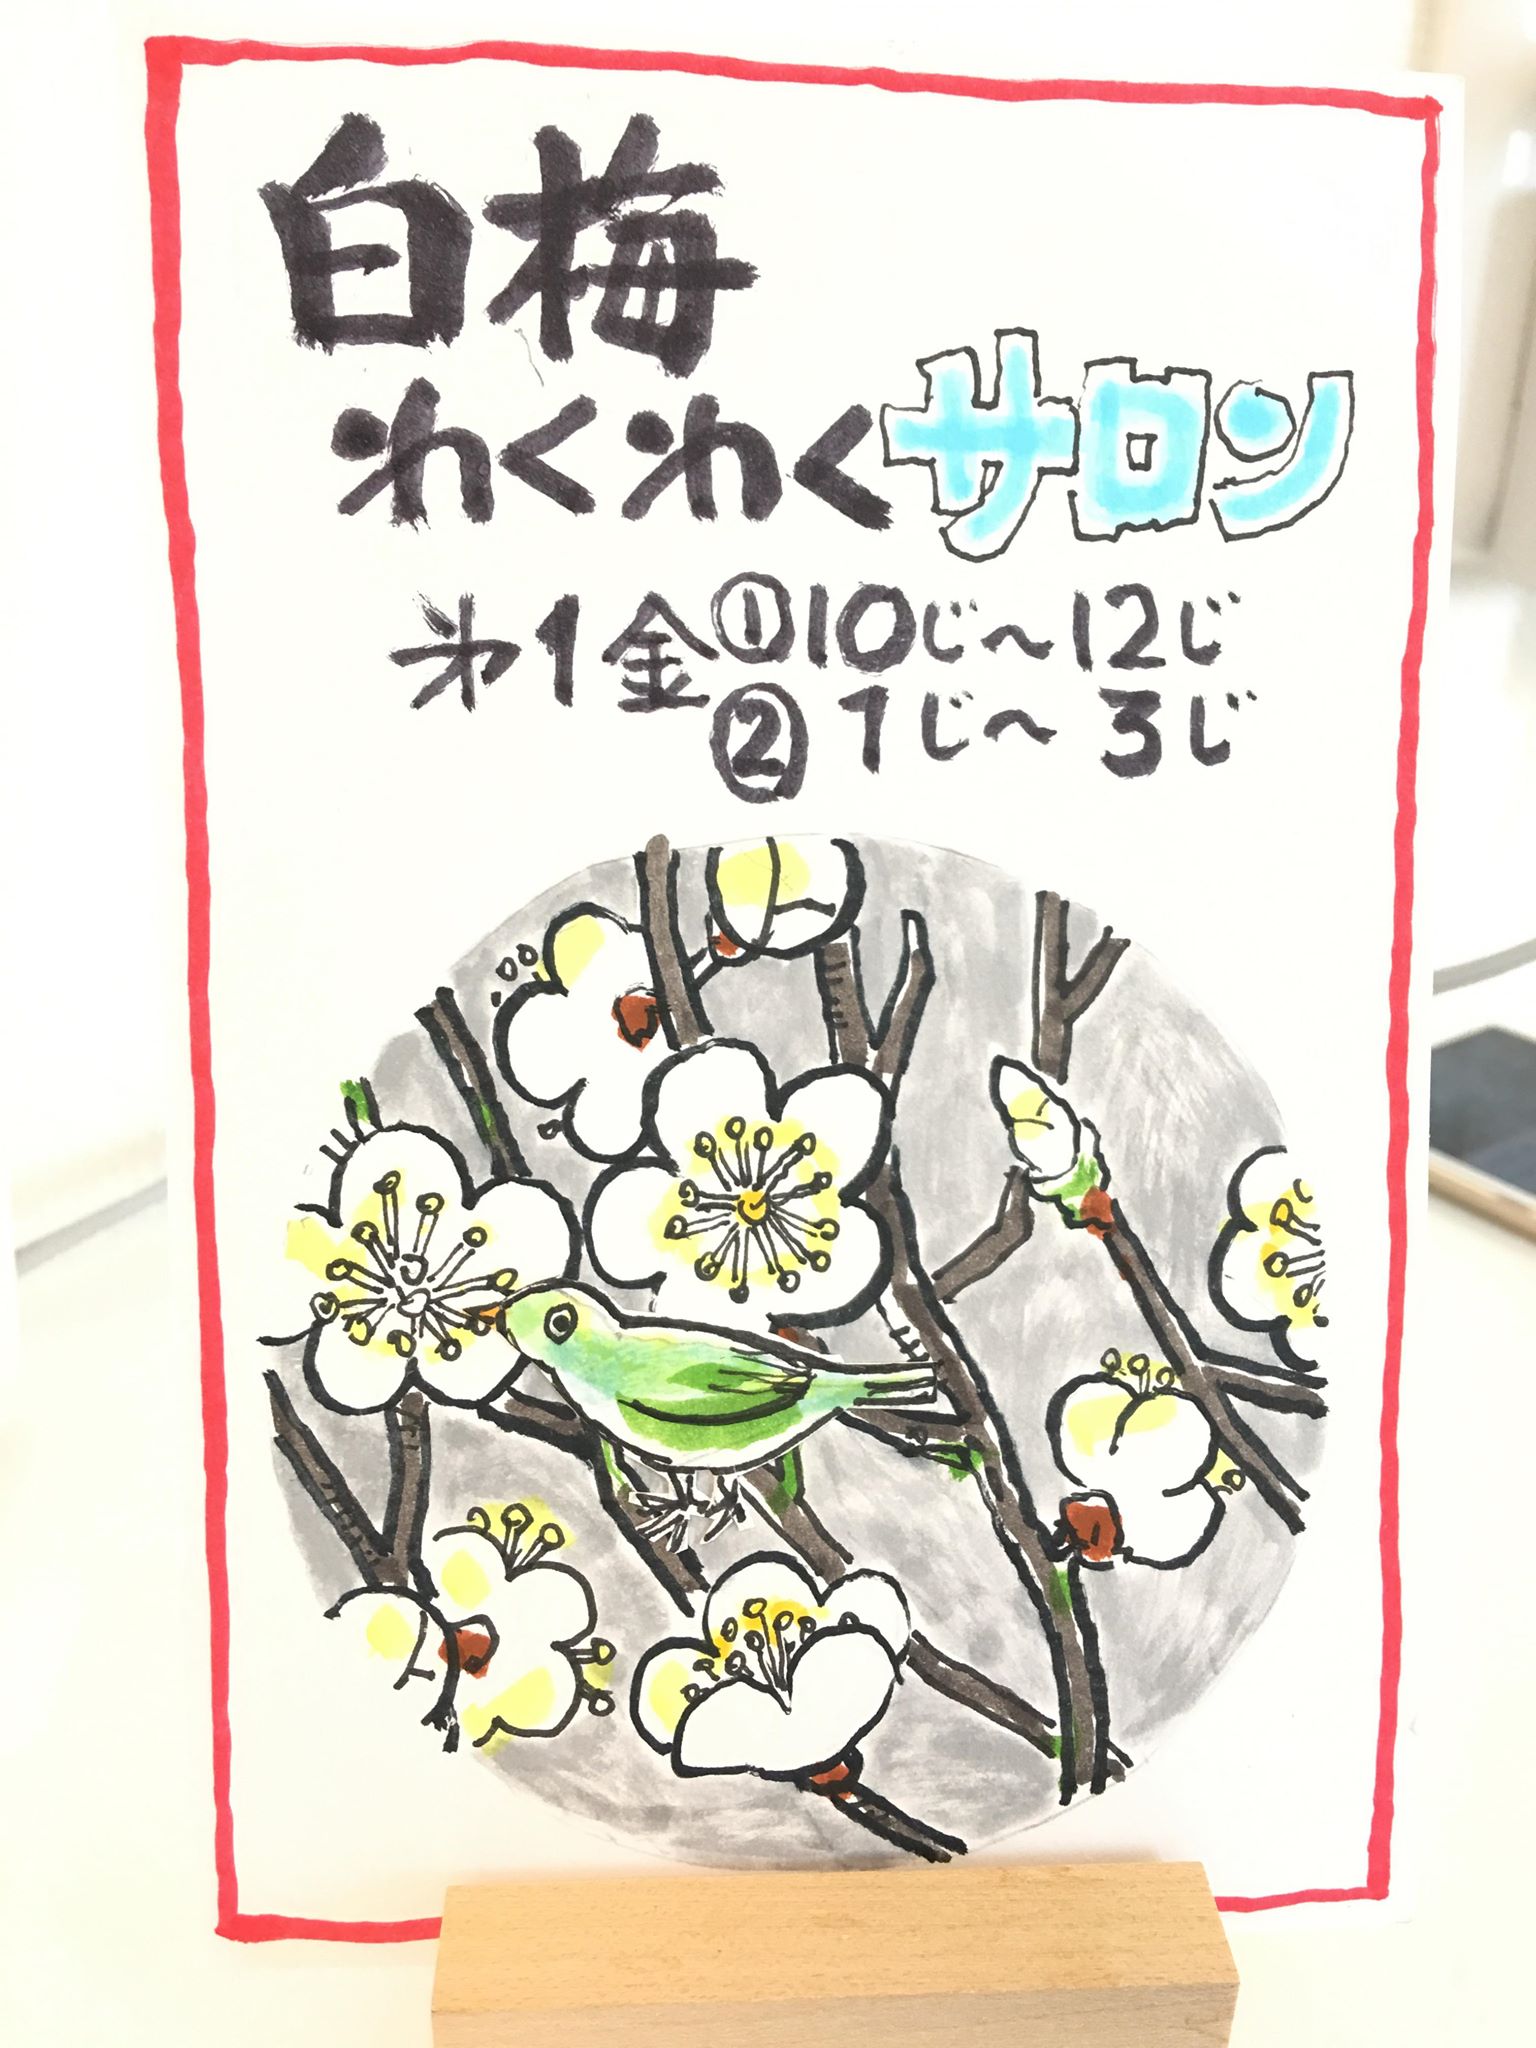 白梅
わくわくサロン
㐧1金①10じ〜12じ
②1じ〜3じ